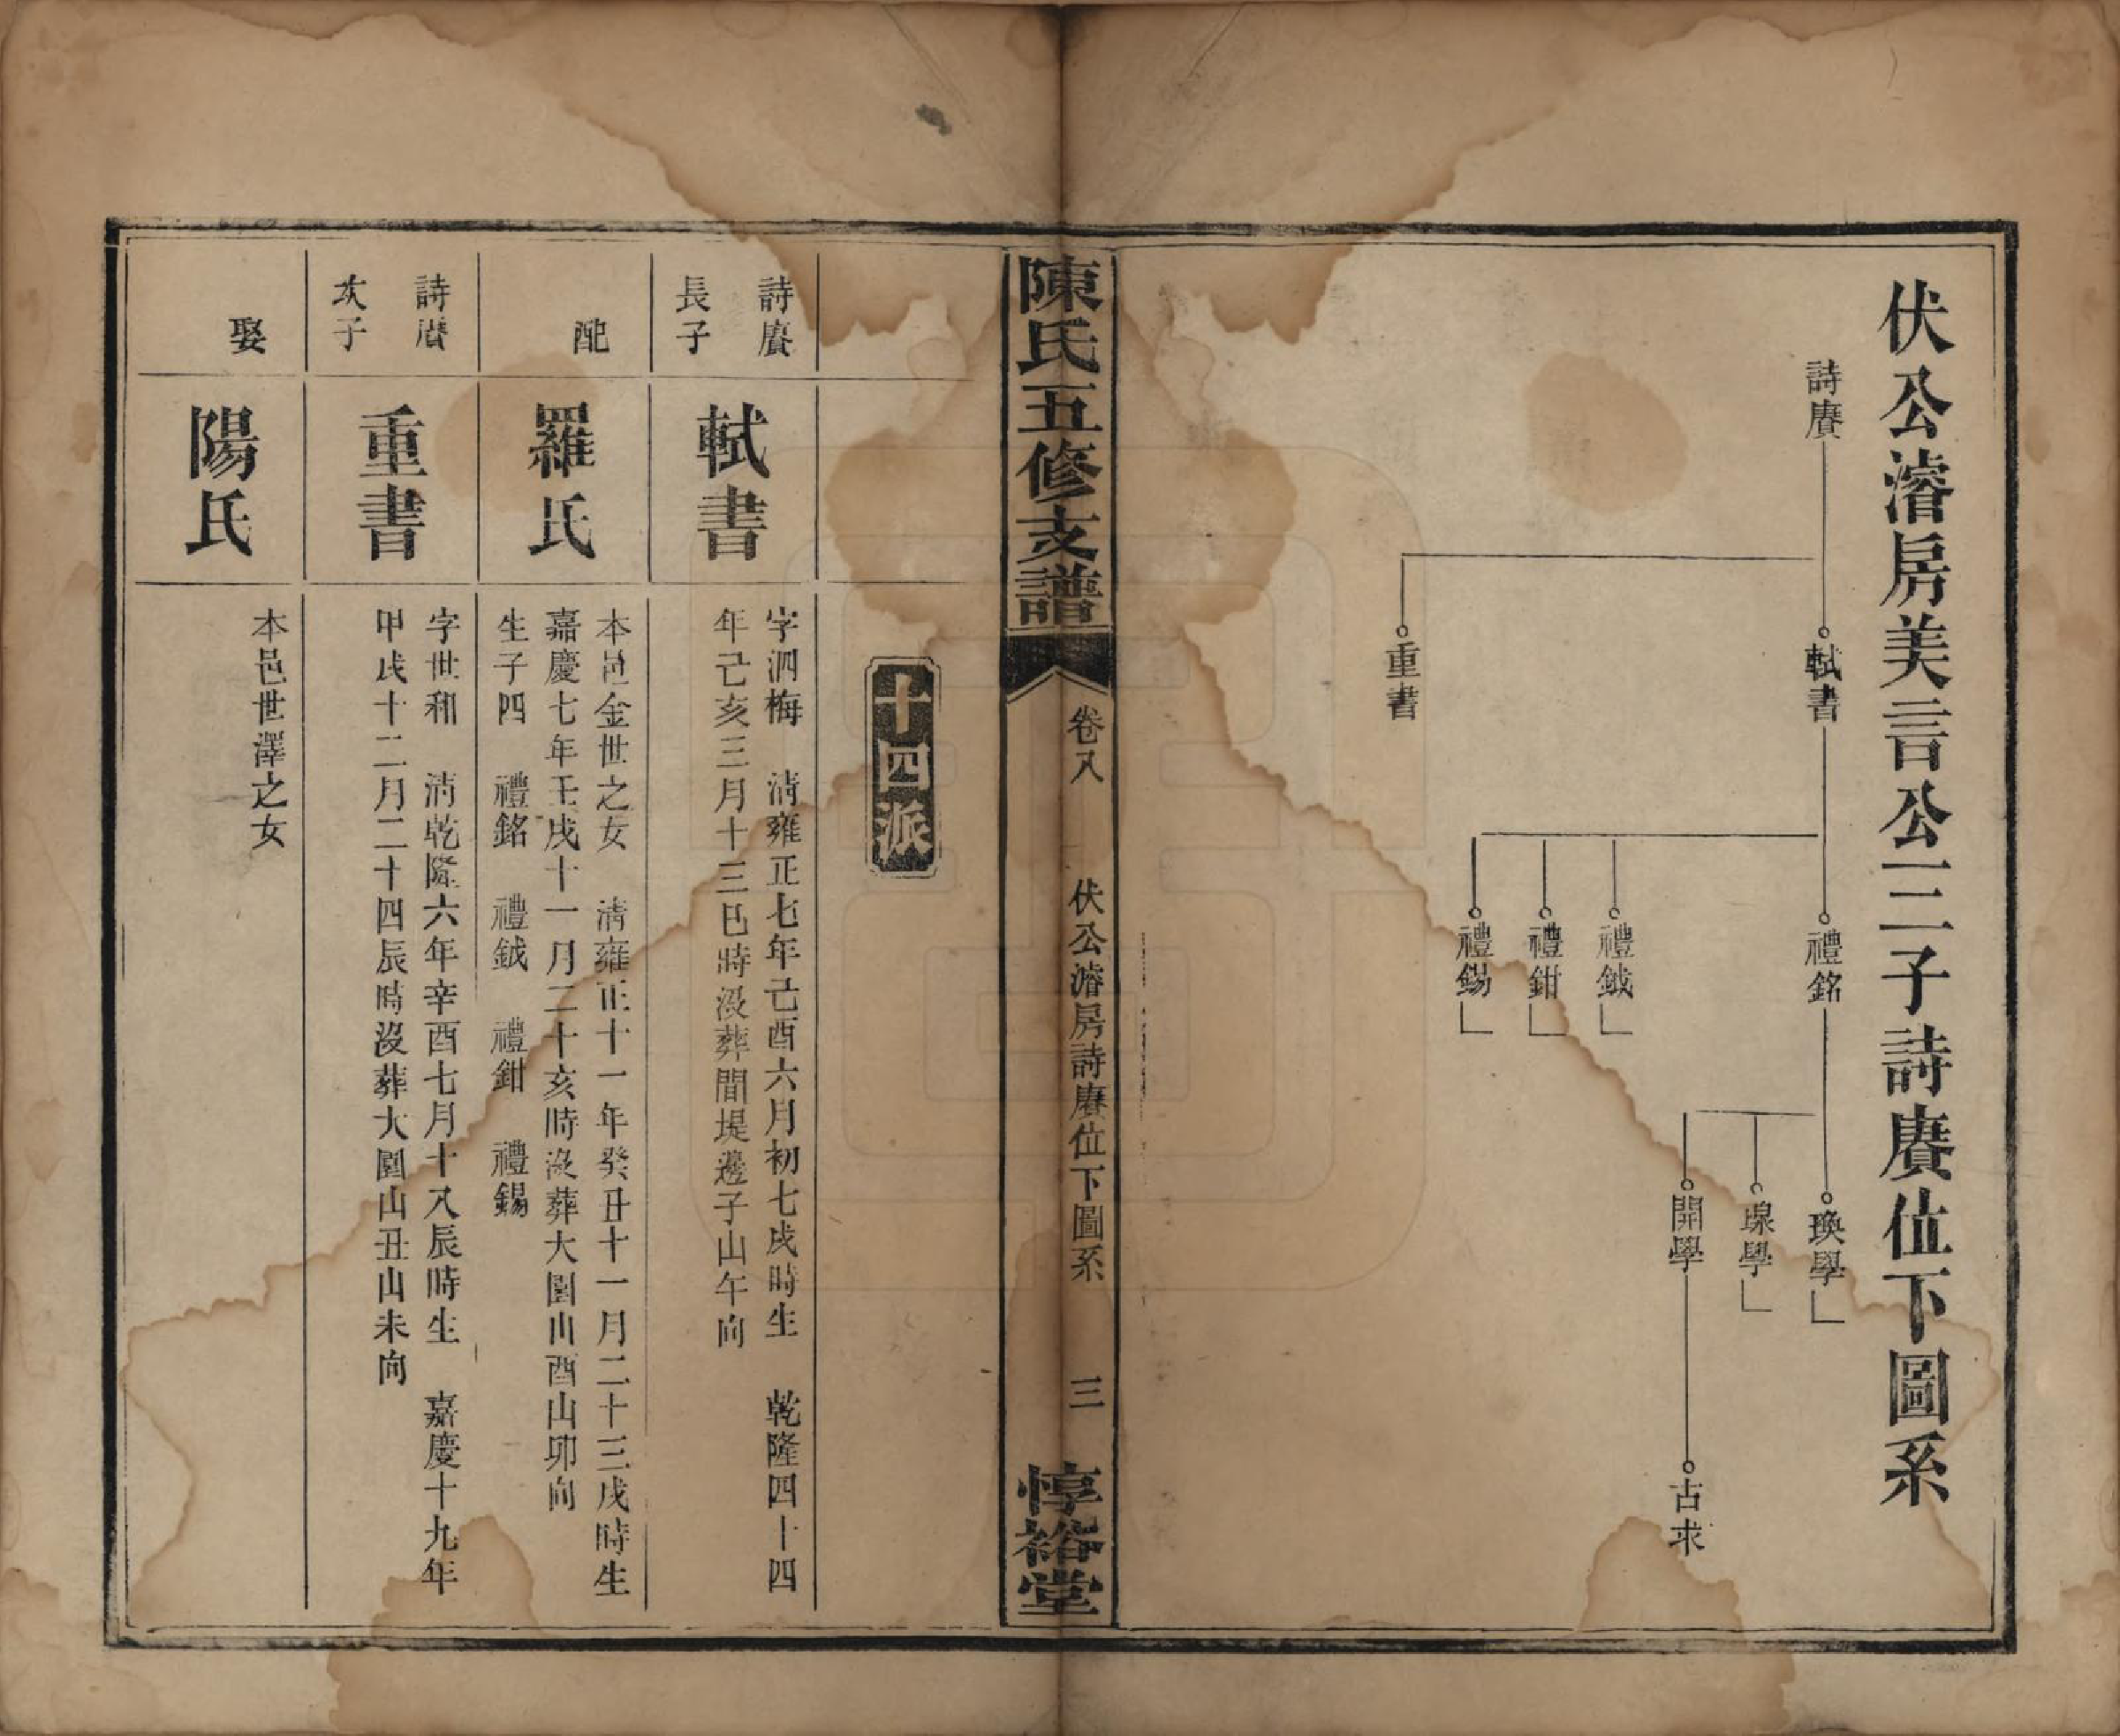 伏公濬房美言公三子詩賡位下圖系
詩賡
軾書
重書
禮銘
禮鉞
禮鉗
禮錫
瑍學
學
開學
古求
陳氏五修支譜
卷八
伏公濬房詩賡位下圖系
三
惇裕堂
十四派
詩賡
長子
軾書
字泗梅 清雍正七年己酉六月初七戌時生 乾隆四十四
年己亥三月十三巳時沒葬間堤邊子山午向
配
羅氏
本邑金世之女 清雍正十一年癸丑十一月二十三戌時生
嘉慶七年壬戌十一月二十亥時沒葬大圍山酉山卯向
生子四 禮銘 禮鉞 禮鉗 禮錫
詩賡
次子
重書
字世和 清乾隆六年辛酉七月十八辰時生 嘉慶十九年
甲戌十二月二十四辰時沒葬大圍山丑山未向
娶
陽氏
本邑世澤之女